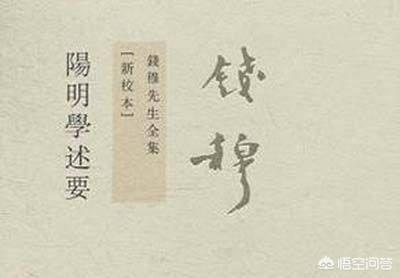 錢穆
錢穆先生全集
[新校本]
陽明學述要
悟空问答